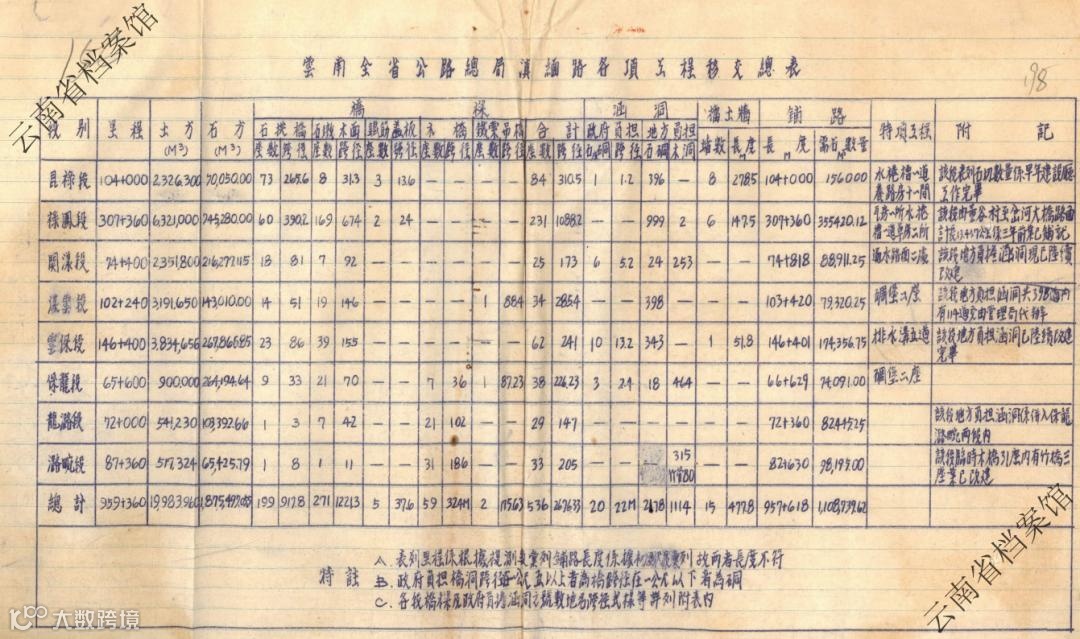 云南省档案馆
198
雲南全省公路總局滇緬路各項工程移交總表
段別 里程 土方(M³) 石方(M³) 橋樑 涵洞 擋土牆 鋪路 特項工程 附記
石拱橋 石墩木面 鋼筋蓋板 木橋 鐵索吊橋 合計 政府負担 地方負担
座數 跨徑 座數 跨徑 座數 跨徑 座數 跨徑 座數 跨徑 座數 跨徑 石涵 跨徑 石涵 木洞 墻數 長度M 長度 需石數量
昆祿段 104+000 2,326,300 70,050.00 73 265.6 8 31.3 3 13.6 — — — — 84 310.5 1 1.2 396 — 8 278.5 104+000 156000 水港橋一道 養路房十一間 工作完畢
祿鳳段 307+360 6,321,000 745,280.00 60 390.2 169 674 2 24 — — — — 231 1088.2 — — 999 2 6 147.5 307+360 355420.12
關漾段 74+400 2,351,800 216,277.15 18 81 7 92 — — — — — — 25 173 6 5.2 24 253 — — 74+818 88,911.25 過水路面二處 該段地方負担涵洞現已陸續改建
漾雲段 102+240 3,191,650 143,010.00 14 51 19 146 — — — — 1 88.4 34 285.4 — — 398 — — 103+420 79,320.25 碉堡二座 該段地方負担涵洞共398道內有114道交由管理局代辦
雲保段 146+400 3,834,656 267,865.85 23 86 39 155 — — — — — — 62 241 10 13.2 343 — 1 51.8 146+401 174,356.75 排水溝五道 該段地方負担涵洞已陸續改建完畢
保龍段 65+600 900,000 264,194.64 9 33 21 70 — — 7 36 1 87.23 38 226.23 3 2.4 18 464 — — 66+629 74,091.00 碉堡二座
龍潞段 72+000 541,230 103,392.66 1 3 7 42 — — 21 102 — — 29 147 — — — — — — 72+360 82445.25 該段地方負担涵洞係併入保龍潞畹兩段內
潞畹段 87+360 517,324 65,425.79 1 8 1 11 — — 31 186 — — 33 205 — — 315 — — 82+630 98,195.00 該段臨時木橋31座內有竹橋三座業已改建
總計 959+360 19,983,960 1,875,497.05 199 917.8 271 1221.3 5 37.6 59 324M 2 175.63 536 2676.33 20 22M 2178 1114 15 477.8 957+618 1,108,739.62
特註
A. 表列里程係根據視測 鋪路長度係據 列故兩者長度不符
B. 政府負担橋洞跨徑 以上者為橋跨徑在一公尺以下者為碉
C. 各段橋樑及政府負担涵洞之號數地名跨徑式樣等詳列附表內
云南省档案馆
大数跨境